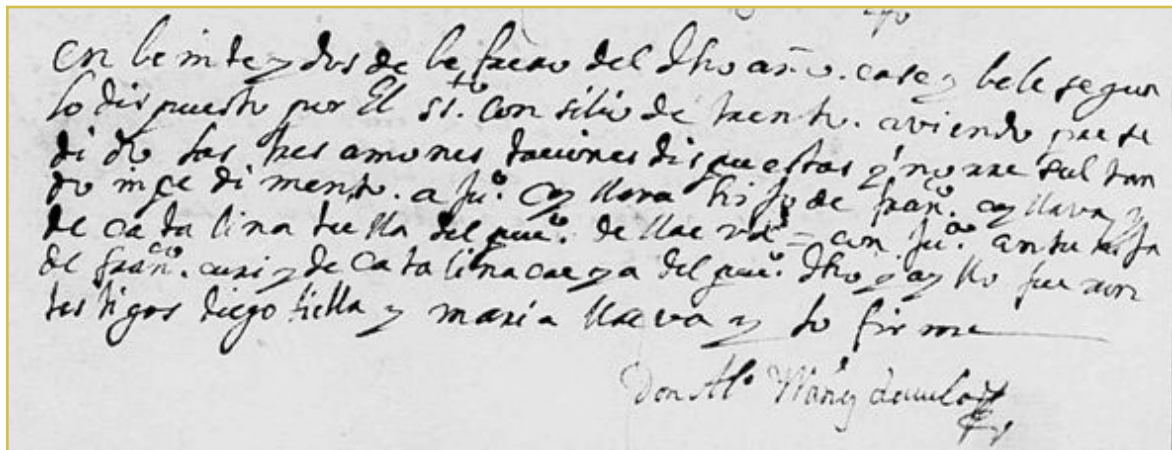 en beinte y dos de hebrero del dho año. case y bele segun
lo dispuesto por El sto. consilio de trento. aviendo prese
dido las tres amonestaciones dispuestas y no rresultan
do inpedimento. a juo. cayllava hijo de franco. cayllava y
de catalina tulla del pueo. de llaeva = con jua. antu hija
de franco. curi y de catalina caeya del pueo. dho y ayllo fueron
testigos diego tiella y maria llaeva y lo firme
Don Alo